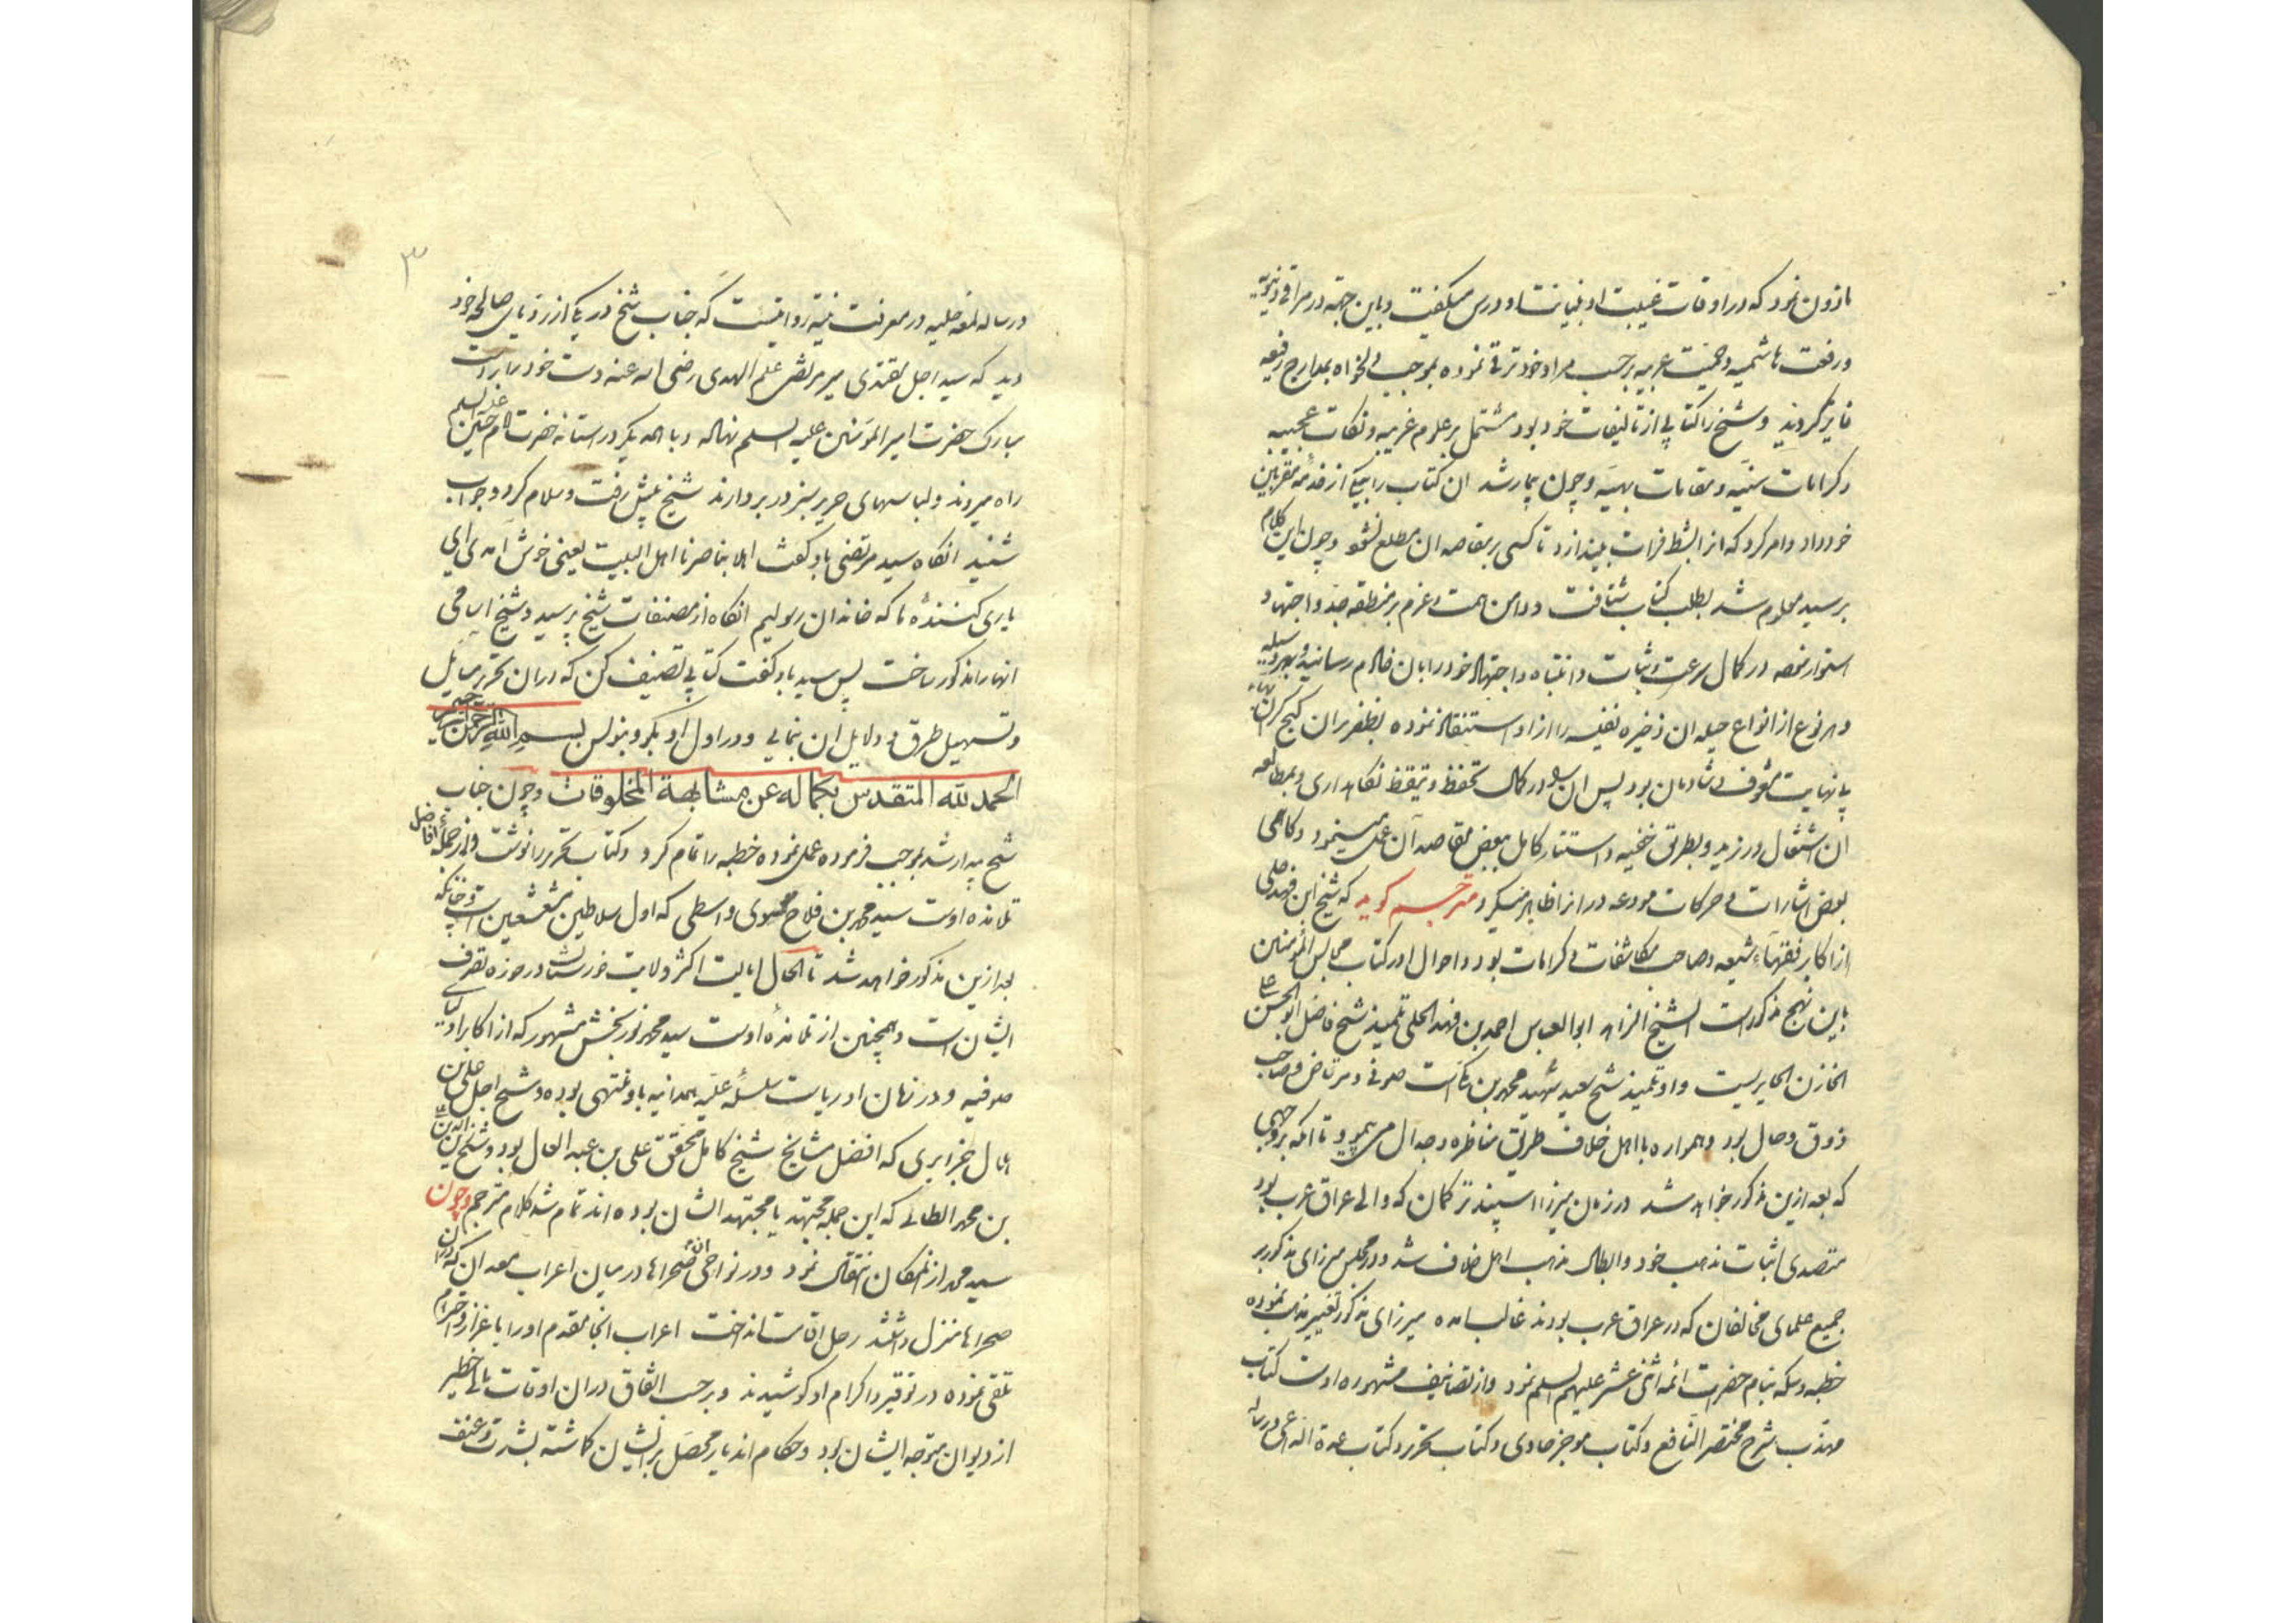 ماذون نمود که در اوقات غیبت او بنیابت او درس میگفت و باین جهة در مراقی دنیویه
و رفعت هاشمیه و حمیت عربیه بر حسب مراد خود ترقی نموده بموجب دلخواه بمدارج رفیعه
فایز گردید و شیخ را کتابی از تالیفات خود بود مشتمل بر علوم غریبه و نکات عجیبه
و کرامات سنیه و مقامات بهیه و چون بیمار شد ان کتاب را بیکی از خدمه مقربین
خود داد و امر کرد که انرا بشط فرات بیندازد تا کسی بر مقاصد ان مطلع نشود و چون این کلام
بر سید معلوم شد بطلب کتاب شتافت و دامن همت و عزم بر منطقه جد و اجتهاد
استوار نموده در کمال سرعت و ثبات و انتباه و اجتهاد خود را بان خادم رسانید و بهر وسیله
و هر نوع از انواع حیله ان ذخیره نفیسه را از او استنقاذ نموده بظفر بران گنج گران بهاء
بانهایت مشعوف و شادمان بود پس ان سید در کمال تحفظ و تیقظ نگاهداری و بمطالعه
ان اشتغال ورزید و بطریق خفیه و استتار کامل ببعض مقاصد آن عمل مینمود و گاهی
بعض اشارات و حرکات مودعه در انرا ظاهر میکرد مترجم گوید که شیخ ابن فهد حلی
از اکابر فقهاء شیعه و صاحب مکاشفات و کرامات بود و احوال او در کتاب مجالس المؤمنین
باین نهج مذکور است الشیخ الزاهد ابو العباس احمد بن فهد الحلی تلمیذ شیخ فاضل ابو الحسن علی
الخازن الحایریست و او تلمیذ شیخ سعید شهید محمد بن مکی است صوفی و مرتاض و صاحب
ذوق و حال بود و همواره با اهل خلاف طریق مناظره و جدال می پیمود تا انکه بروجهی
که بعد ازین مذکور خواهد شد در زمان میرزا اسپند ترکمان که والی عراق عرب بود
متصدی اثبات مذهب خود و ابطال مذهب اهل خلاف شد و در مجلس میرزای مذکور بر
جمیع علمای مخالفان که در عراق عرب بودند غالب امده میرزای مذکور تغییر مذهب نموده
خطبه و سکه بنام حضرت ائمه اثنی عشر علیهم السلم نمود و از تصانیف مشهوره اوست کتاب
مهذب شرح مختصر النافع و کتاب موجز حاوی و کتاب تحریر و کتاب عدة الداعی و رساله
۳
و رساله لمعه جلیه در معرفت نیة روایتست که جناب شیخ در یکی از رؤیای صالحه خود
دید که سید اجل مقتدی میر مرتضی علم الهدی رضی الله عنه دست خود را بر دست
مبارک حضرت امیر المؤمنین علیه السلم نهاده و با همدیگر در استانه حضرت امام حسین علیه السلم
راه میروند و لباسهای حریر سبز در بر دارند شیخ پیش رفت و سلام کرد و جواب
شنید انگاه سید مرتضی باو گفت اهلا بناصرنا اهل البیت یعنی خوش آمدی ای
یاری کننده ما که خاندان رسولیم انگاه از مصنفات شیخ پرسید و شیخ اسامی
انها را مذکور ساخت پس سید باو گفت کتابی تصنیف کن که در ان تحریر مسایل
و تسهیل طرق و دلایل ان نمایی و در اول او بگو و بنویس بسم الله الرحمن الرحیم
الحمد لله المتقدس بکماله عن مشابهة المخلوقات و چون جناب
شیخ بیدار شد بموجب فرموده عمل نموده خطبه را تمام کرد و کتاب تحریر را نوشت و از جمله افاضل
تلامذه اوست سید محمد بن فلاح موسوی واسطی که اول سلاطین مشعشعین است و چنانکه
بعد ازین مذکور خواهد شد تا الحال ایالت اکثر ولایت خوزستان در حوزه تصرف
ایشان است و همچنین از تلامذه اوست سید محمد نوربخش مشهور که از اکابر اولیای
صوفیه و در زمان او ریاست سلسله علیه همدانیه باو منتهی بوده و شیخ اجل علی بن
هلال جزایری که افضل مشایخ شیخ کامل محقق علی بن عبد العال بود و شیخ
بن محمد الطائی که این جمله مجتهد یا مجتهد الشان بوده اند تمام شد کلام مترجم و چون
سید محمد از انمکان انتقال نمود و در نواحی ان صحراها در میان اعراب معدان که در ان
صحراها منزل داشتند رحل اقامت انداخت اعراب انجا مقدم او را باعزاز و احترام
تلقی نموده در توقیر و اکرام او کوشیدند و بر حسب اتفاق در ان اوقات مالی خطیر
از دیوان متوجه ایشان بود و حکام اندیار محصل بر ایشان گماشته بشدت و عنف